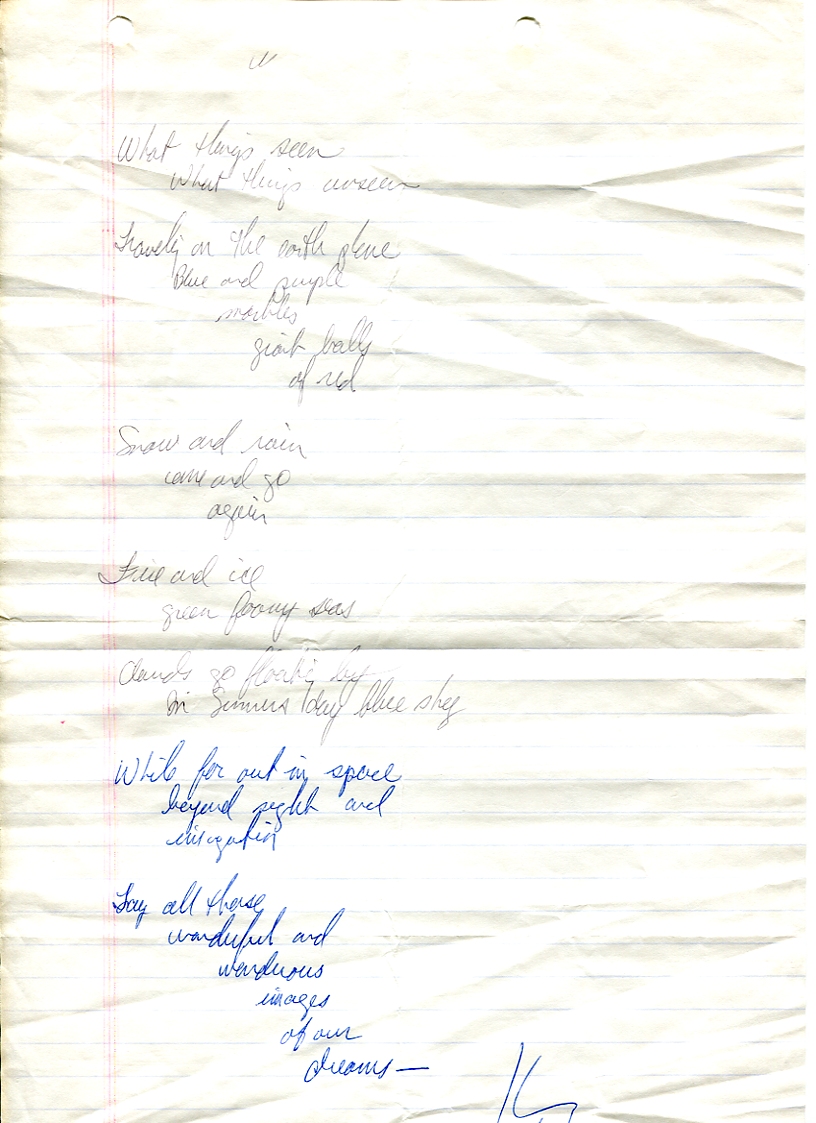 What things seen
What things unseen
Traveling on the earth plane
Blue and purple
marbles
giant balls
of red
Snow and rain
come and go
again
Fire and ice
green foamy seas
Clouds go floating by
In Summers day blue sky
While far out in space
beyond sight and
imagination
Lay all these
wonderful and
wonderous
images
of our
dreams—